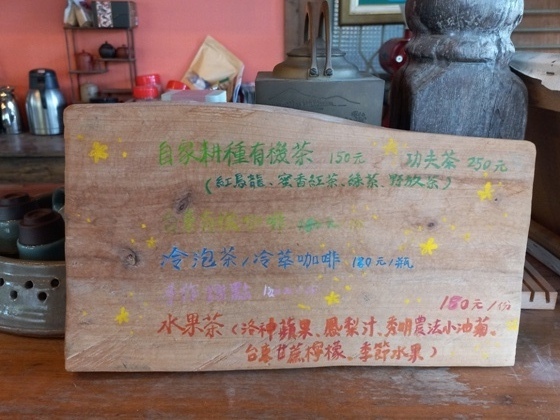 自家耕種有機茶 150元 功夫茶 250元
(紅烏龍、蜜香紅茶、綠茶、野放茶)
冷泡茶/冷萃咖啡 180元/瓶
手作
180元/份
水果茶(洛神蘋果、鳳梨汁、秀明農法小油菊。
台東甘蔗檸檬、季節水果)